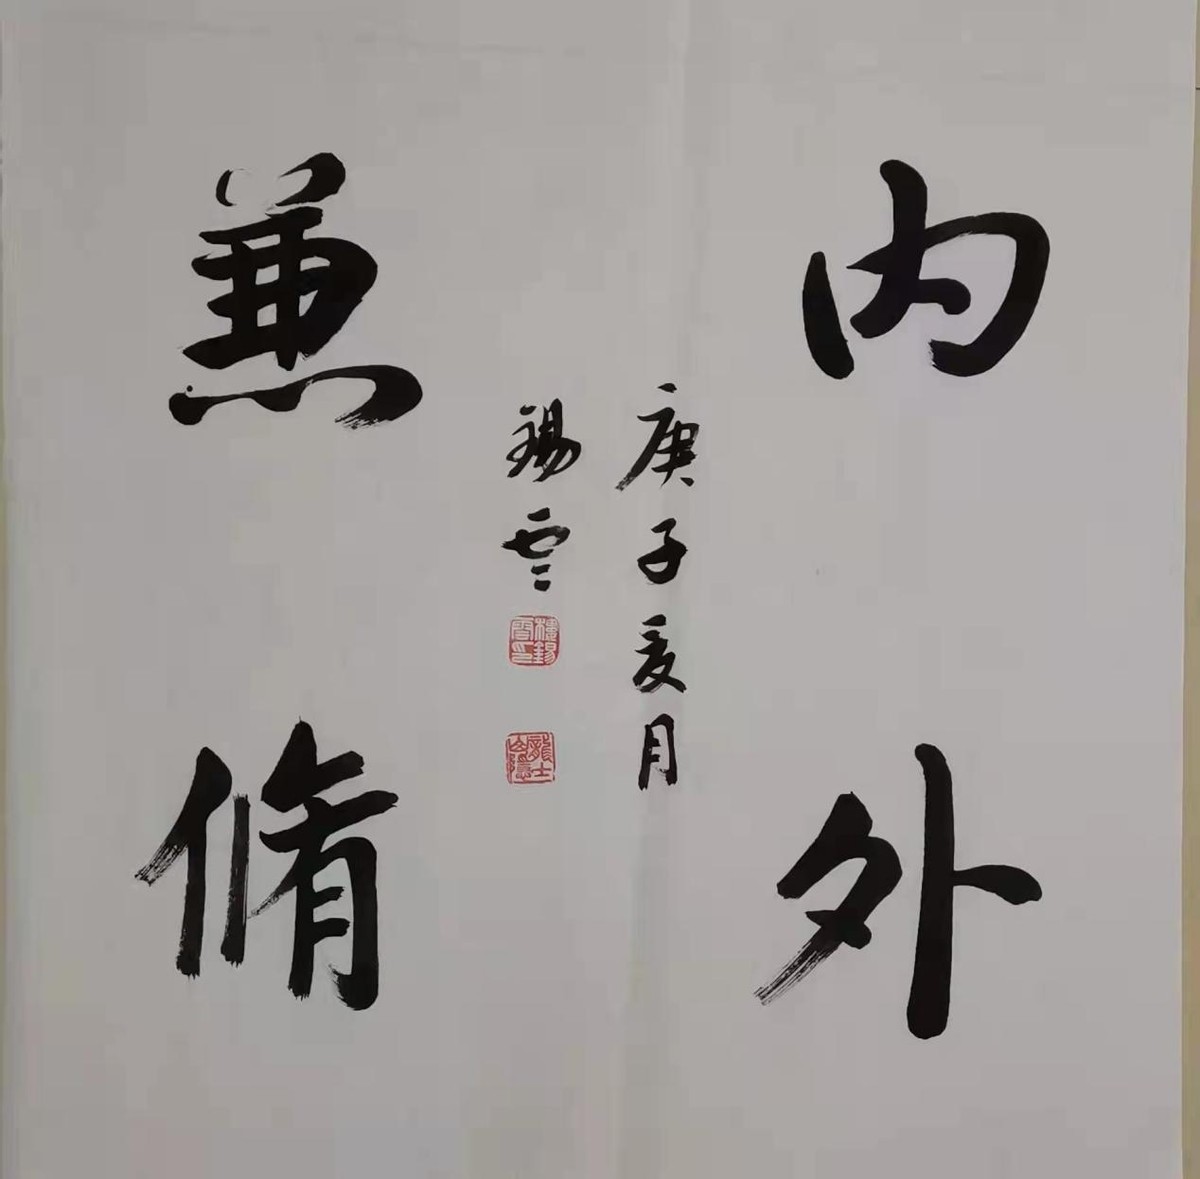 内外
兼脩
庚子夏月
錫雲